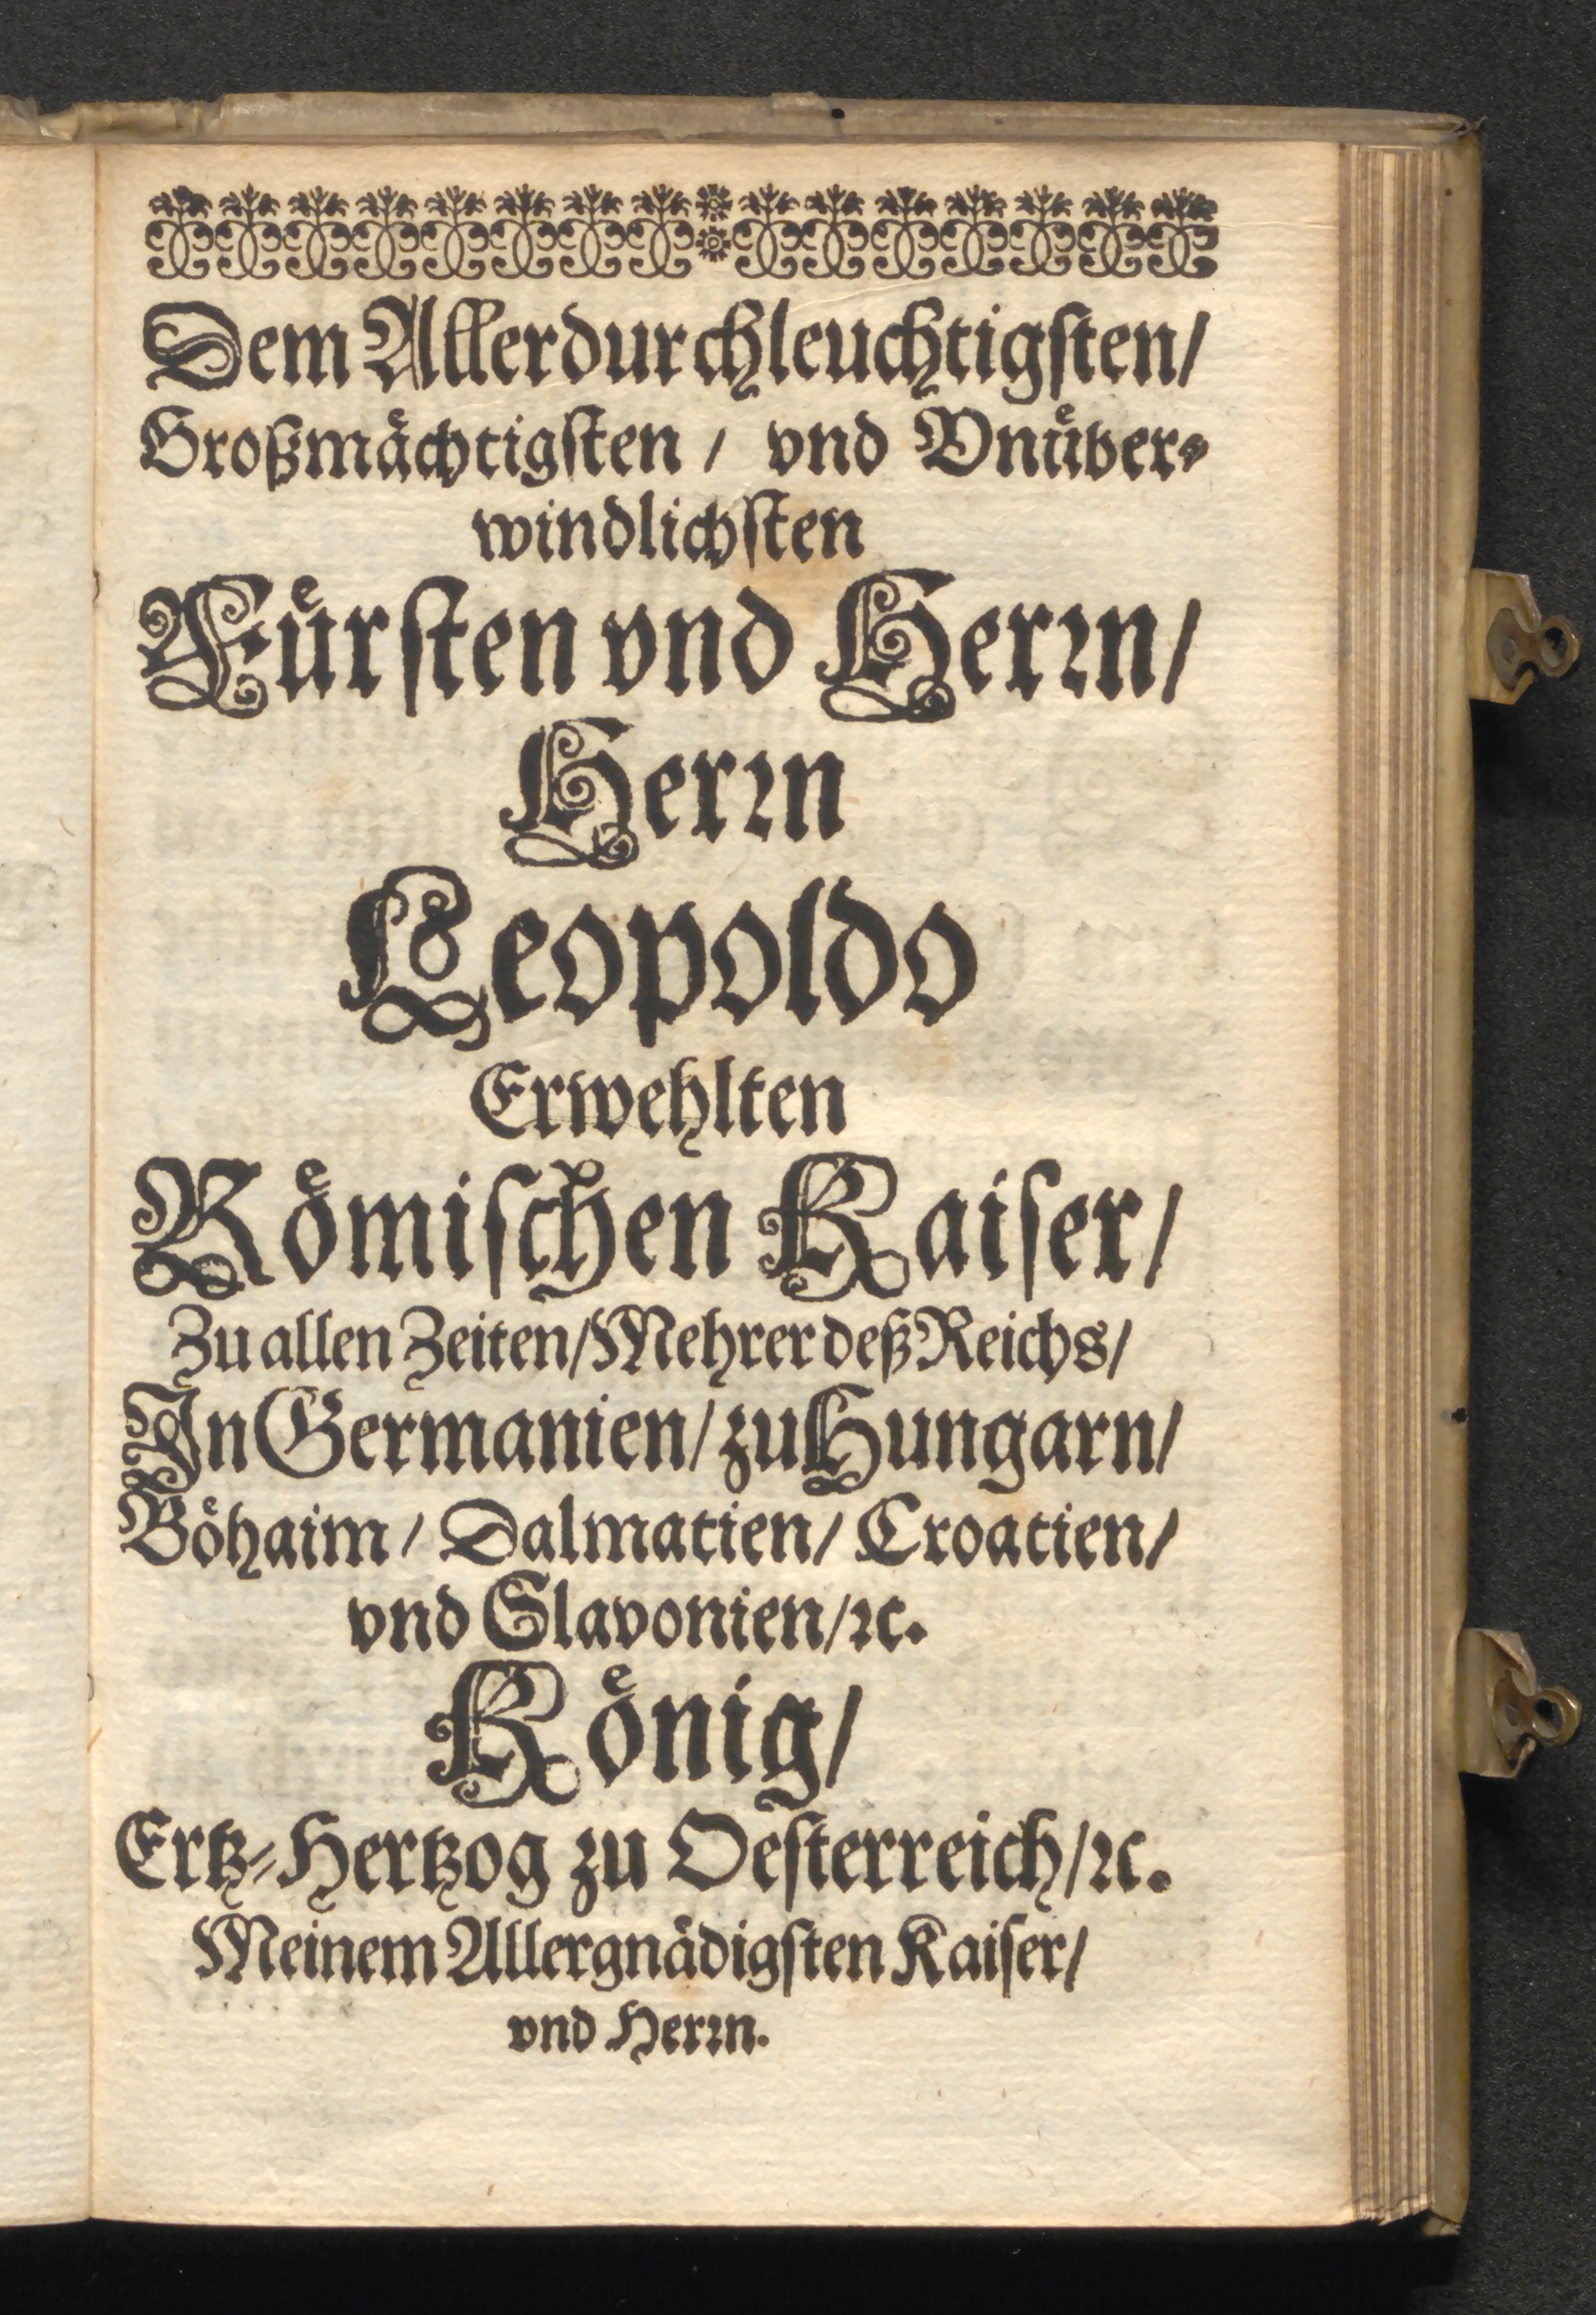 Dem Allerdurchleuchtigſten/
Großmaͤchtigſten / vnd Vnuͤber⸗
windlichſten
Fuͤrſten vnd Herꝛn/
Herꝛn
Leopoldo
Erwehlten
Roͤmiſchen Kaiſer/
Zu allen Zeiten/Mehrer deß Reichs/
In Germanien/ zu Hungarn/
Boͤhaim/ Dalmatien/ Croatien/
vnd Slavonien/ꝛc.
Koͤnig/
Ertz⸗Hertzog zu Oeſterreich/ꝛc.
Meinem Allergnaͤdigſten Kaiſer/
vnd Herꝛn.